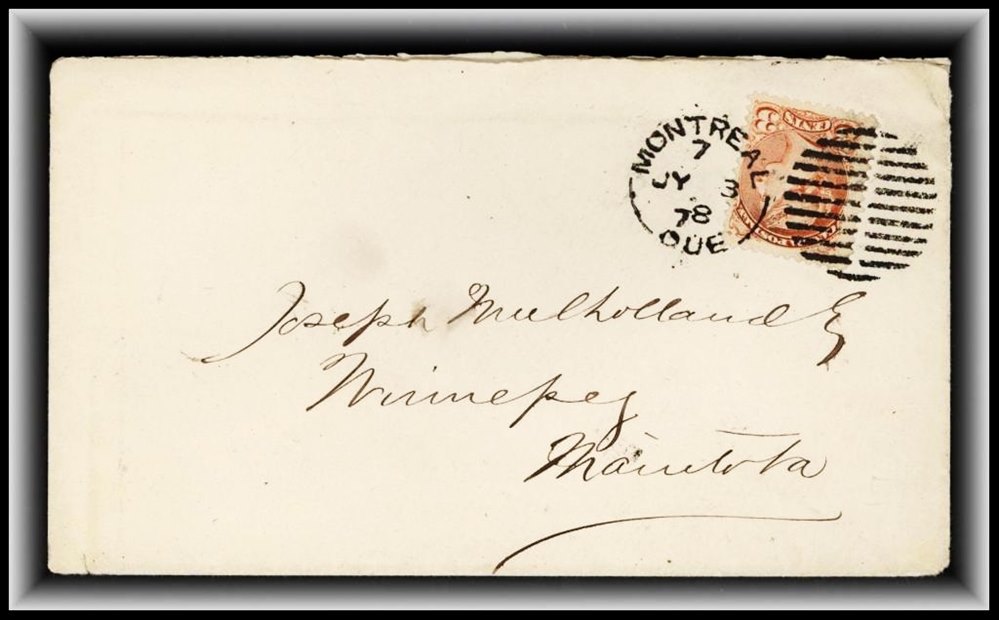 MONTREAL
7
JY 3
78
QUE
3 3
Joseph Mulholland Esq
Winnepeg
Manitoba